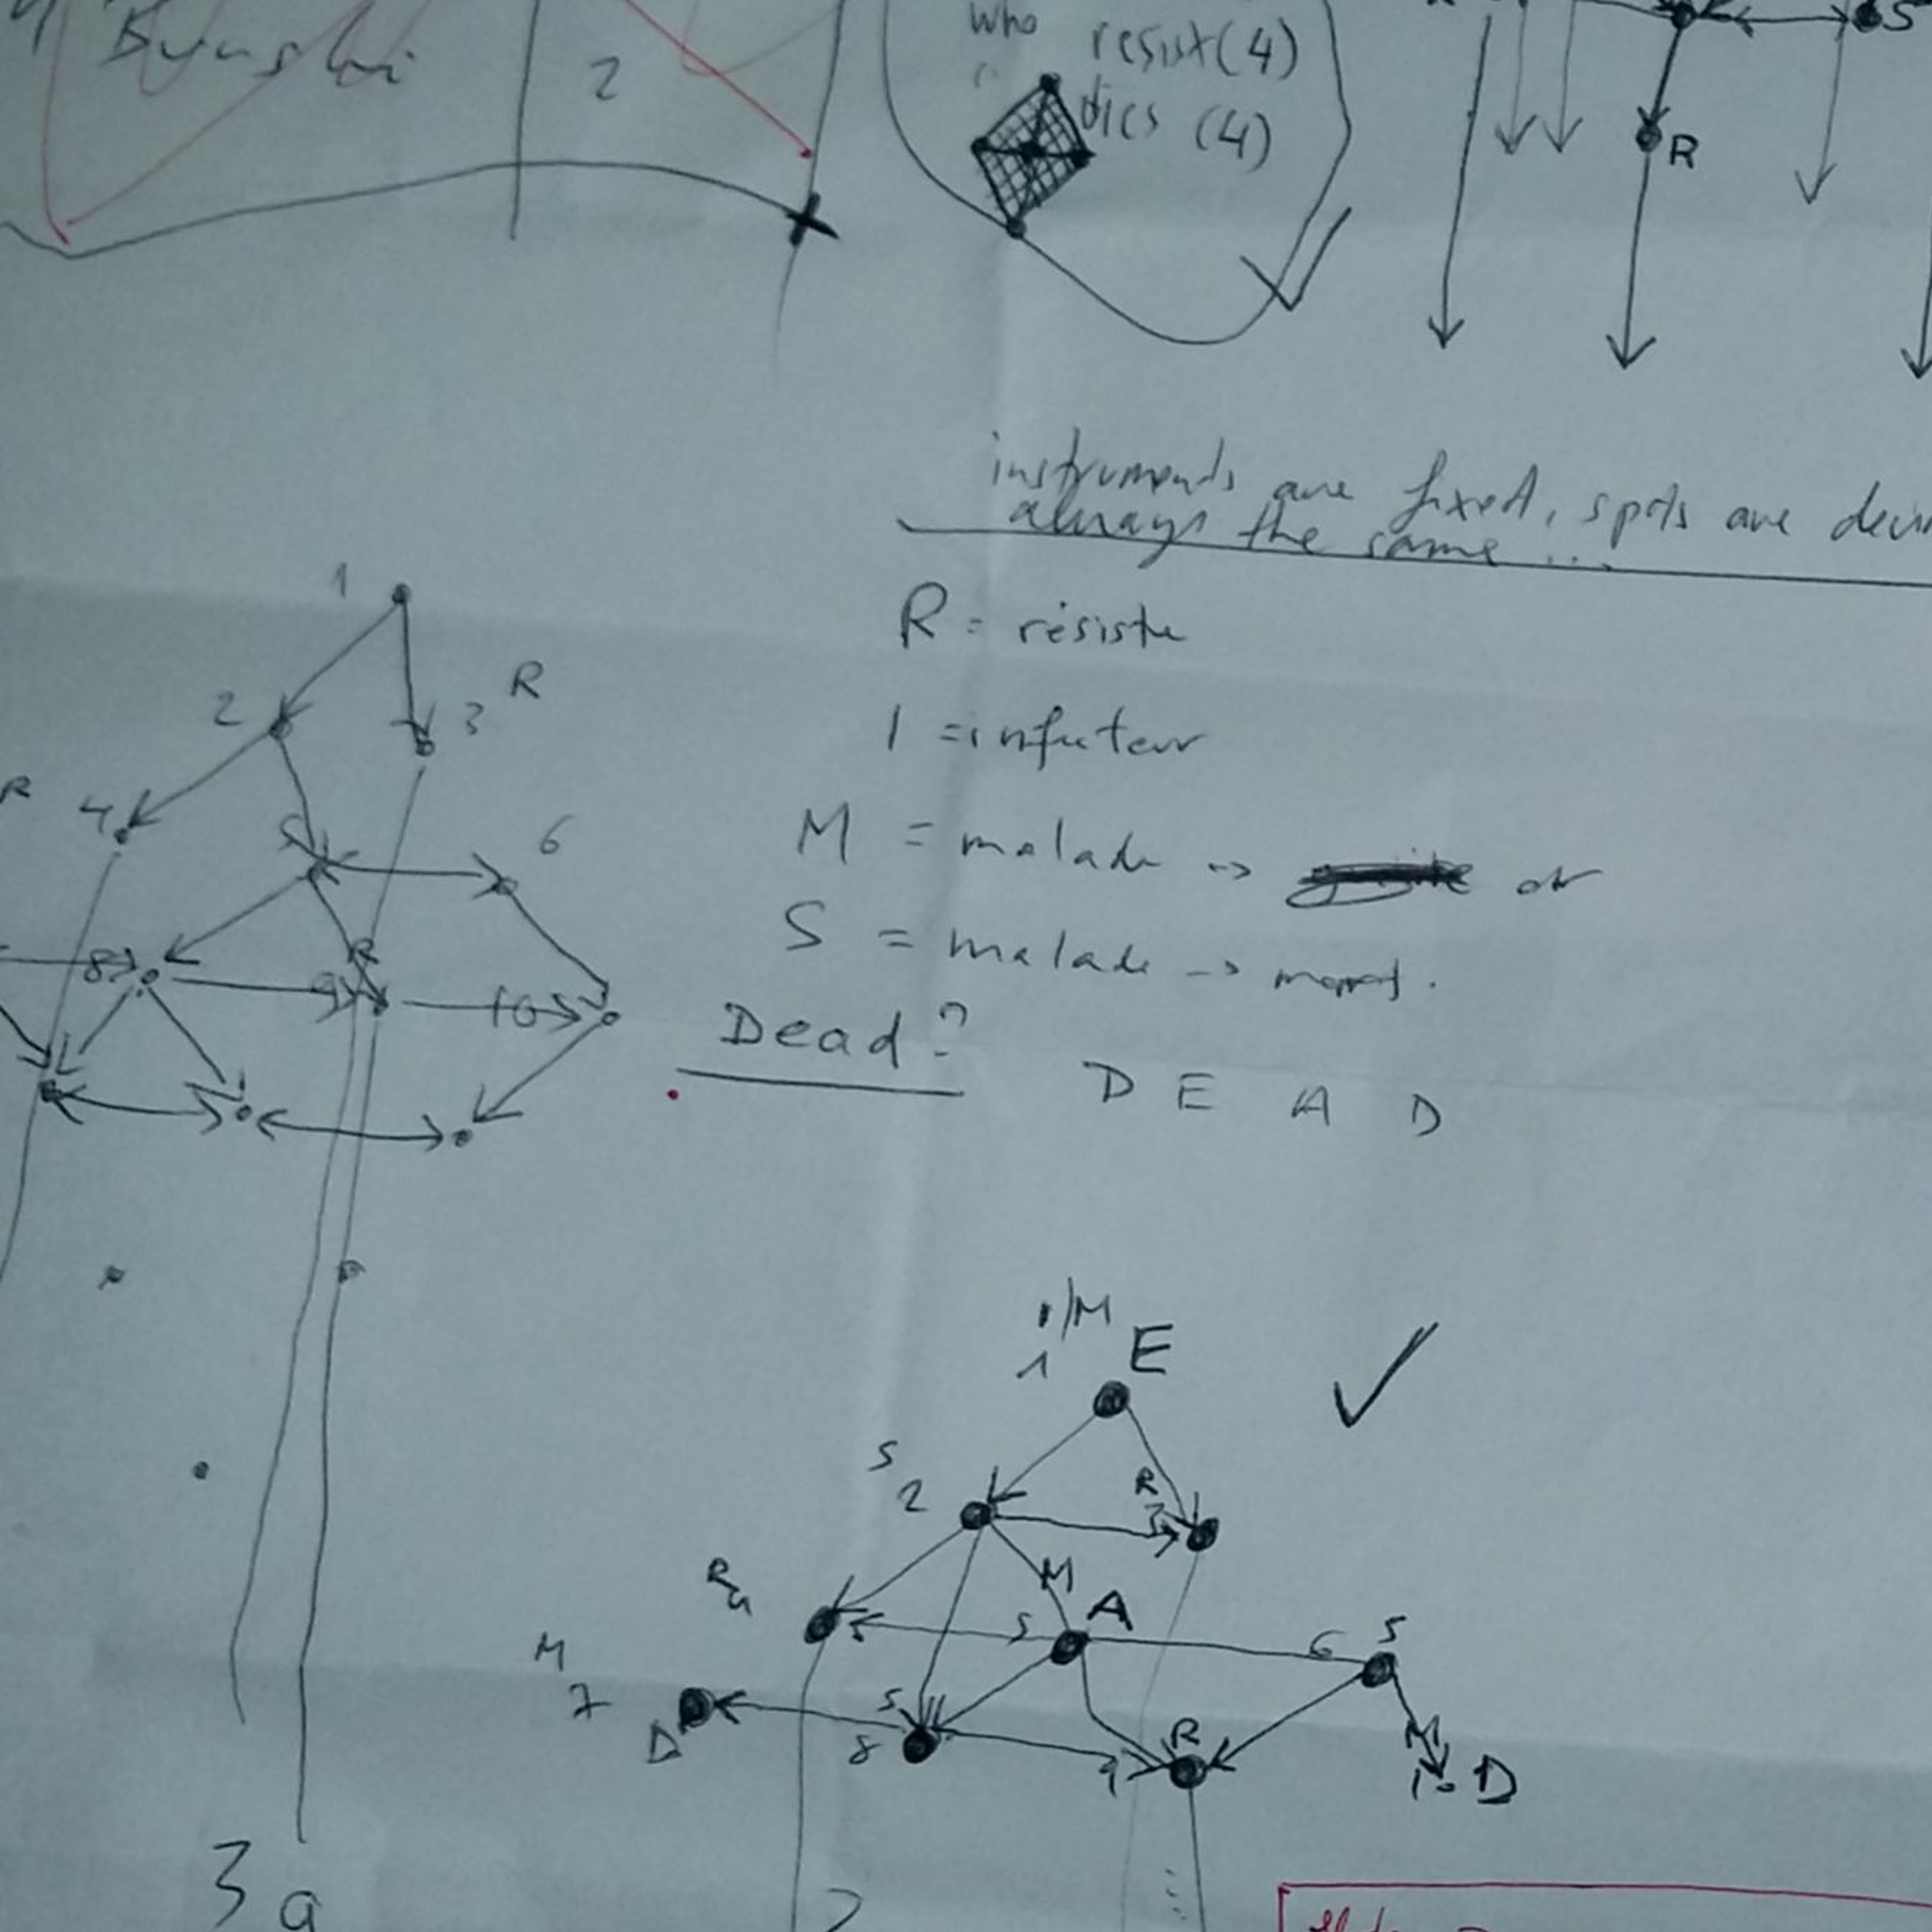 2
who resist (4)
dies (4)
S
R
instruments are fixed, spots are
always the same...
1
R = résiste
2
3 R
I = infecteur
R 4
5
6
M = malade → or
S = malade →
8
R
9
10
Dead?
D E A D
I/M
1 E
S
2
R
3
R
4
M
5 A
6 S
M
7
D
S
8
R
9
M
10 D
3 a
2